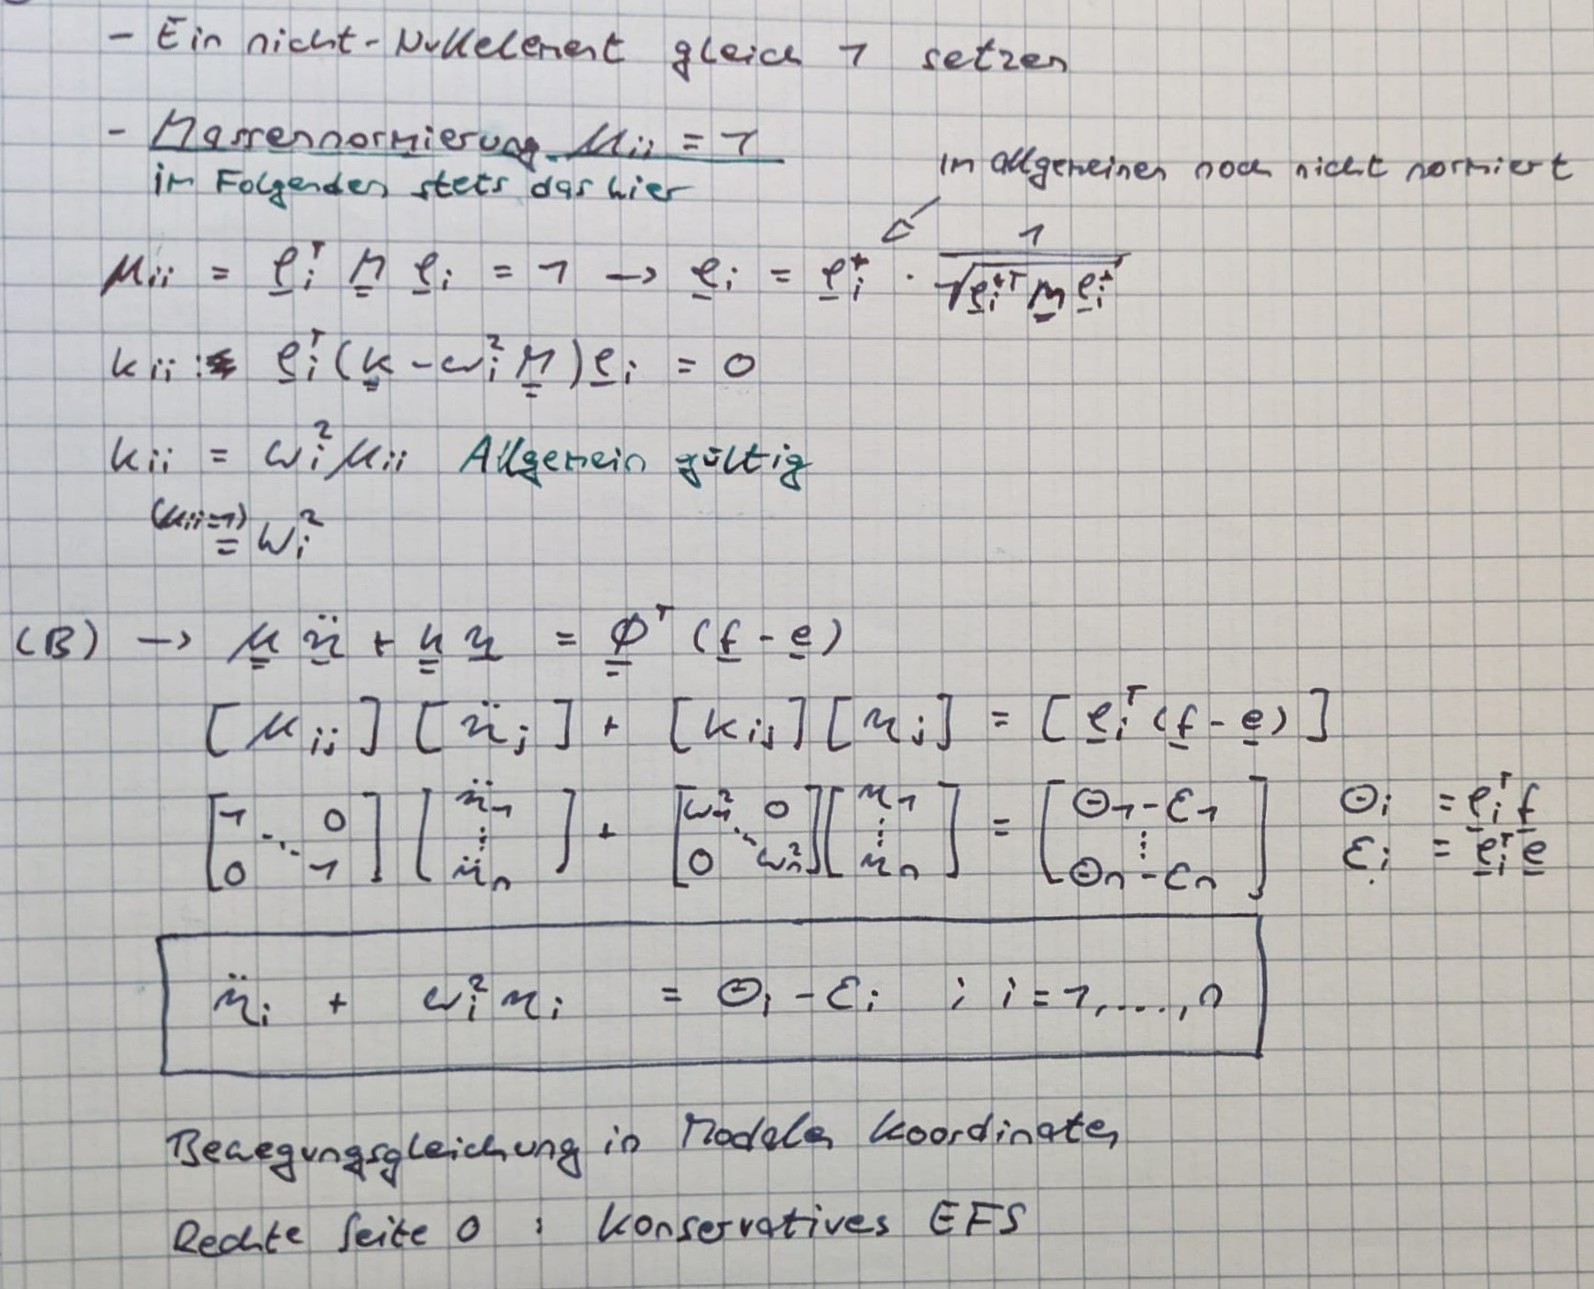 - Ein nicht-Nullelement gleich 1 setzen
- Massennormierung μii = 1
im Folgenden stets das hier
im allgemeinen noch nicht normiert
μii = φi^T M φi = 1 → φi = φi^* · 1/√(φi^*T M φi^*)
kii: φi^T (K - ωi² M) φi = 0
kii = ωi² μii Allgemein gültig
(μii=1) = ωi²
(B) → μ η̈ + k η = Φ^T (f - e)
[μij] [η̈j] + [kij] [ηj] = [φi^T (f - e)]
[1 ⋱ 0 0 1] [η̈1 ⋮ η̈n] + [ω1² 0 ⋱ 0 ωn²] [η1 ⋮ ηn] = [Θ1 - ε1 ⋮ Θn - εn] Θi = φi^T f
εi = φi^T e
η̈i + ωi² ηi = Θi - εi ; i = 1, ...., n
Bewegungsgleichung in Modalen Koordinaten
Rechte Seite 0 : Konservatives EFS